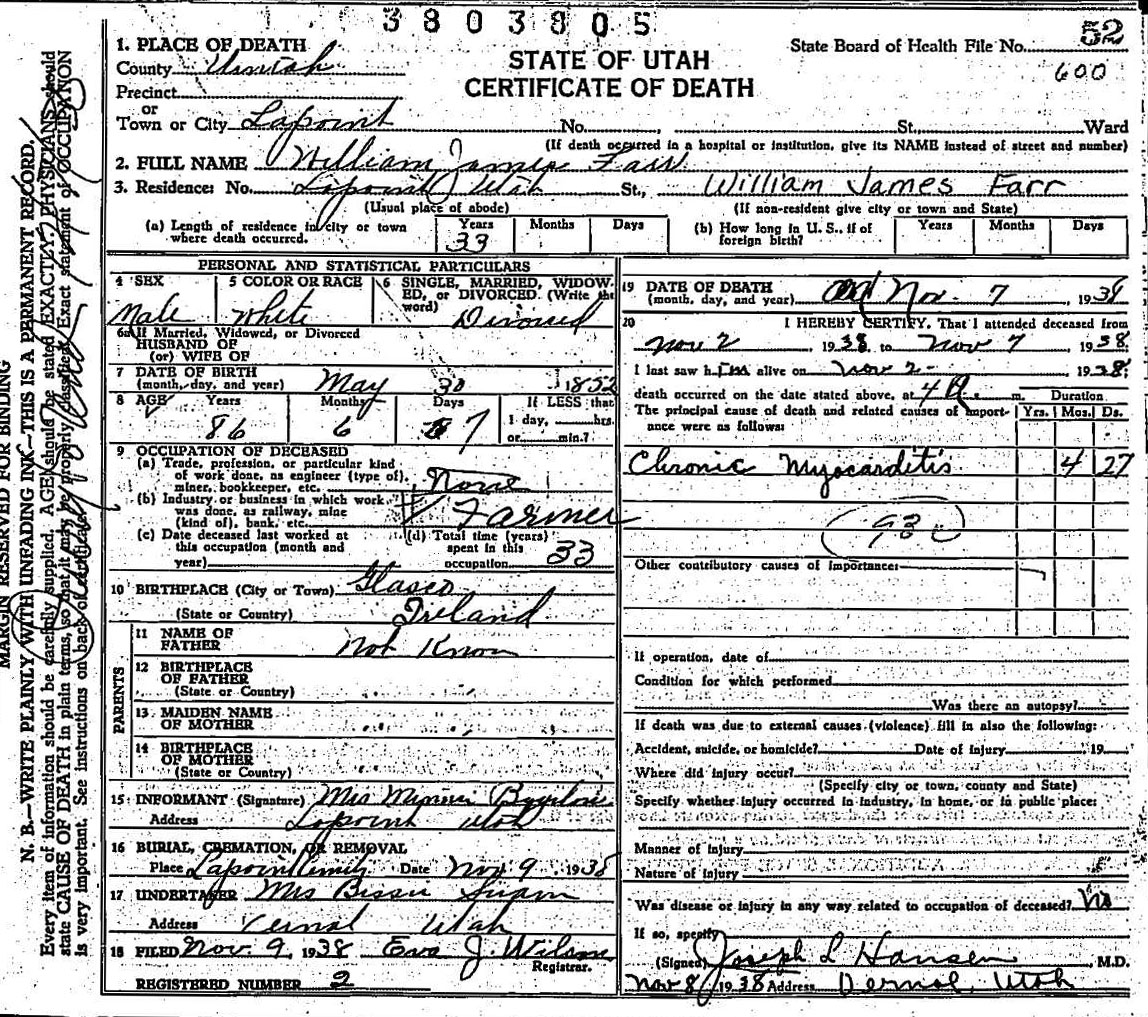 3803805
52
State Board of Health File No.
600
STATE OF UTAH
CERTIFICATE OF DEATH
1. PLACE OF DEATH
County Uintah
Precinct
or
Town or City Lapoint No. St., Ward
(If death occurred in a hospital or institution, give its NAME instead of street and number)
2. FULL NAME William James Farr
3. Residence: No. Lapoint Utah St., William James Farr
(Usual place of abode) (If non-resident give city or town and State)
(a) Length of residence in city or town where death occurred. Years 33 Months Days
(b) How long in U. S., if of foreign birth? Years Months Days
PERSONAL AND STATISTICAL PARTICULARS
4 SEX Male
5 COLOR OR RACE White
6 SINGLE, MARRIED, WIDOWED, or DIVORCED. (Write the word) Divorced
6a If Married, Widowed, or Divorced
HUSBAND OF
(or) WIFE OF
7 DATE OF BIRTH
(month, day, and year) May 30 1852
8 AGE Years 86 Months 6 Days 7 If LESS than
1 day, hrs.
or min.?
9 OCCUPATION OF DECEASED
(a) Trade, profession, or particular kind
of work done, as engineer (type of),
miner, bookkeeper, etc. None
(b) Industry or business in which work
was done, as railway, mine
(kind of), bank, etc. Farmer
(c) Date deceased last worked at
this occupation (month and
year)
(d) Total time (years)
spent in this
occupation 33
10 BIRTHPLACE (City or Town) Glasco
(State or Country) Ireland
PARENTS
11 NAME OF
FATHER Not Know
12 BIRTHPLACE
OF FATHER
(State or Country)
13 MAIDEN NAME
OF MOTHER
14 BIRTHPLACE
OF MOTHER
(State or Country)
15 INFORMANT (Signature) Mrs
Address Lapoint Utah
16 BURIAL, CREMATION, OR REMOVAL
Place Lapoint Date Nov 9 1938
17 UNDERTAKER Mrs
Address Vernal Utah
18 FILED Nov. 9, 1938 Eva J. Wilson
Registrar.
REGISTERED NUMBER 2
19 DATE OF DEATH
(month, day, and year) Nov. 7, 1938
20 I HEREBY CERTIFY, That I attended deceased from
Nov 2, 1938 to Nov 7 1938
I last saw him alive on Nov 2 1938;
death occurred on the date stated above, at 4 A. m. Duration
The principal cause of death and related causes of importance were as follows: Yrs. Mos. Ds.
Chronic Myocarditis 4 27
93
Other contributory causes of importance:
If operation, date of
Condition for which performed
Was there an autopsy?
If death was due to external causes (violence) fill in also the following:
Accident, suicide, or homicide? Date of injury 19
Where did injury occur?
(Specify city or town, county and State)
Specify whether injury occurred in industry, in home, or in public place:
Manner of injury
Nature of injury
Was disease or injury in any way related to occupation of deceased? No
If so, specify
(Signed) Joseph L Hansen, M.D.
Nov 8 1938 Address Vernal, Utah
MARGIN RESERVED FOR BINDING
N. B.—WRITE PLAINLY WITH UNFADING INK—THIS IS A PERMANENT RECORD.
Every item of information should be carefully supplied. AGE should be stated EXACTLY. PHYSICIANS should
state CAUSE OF DEATH in plain terms, so that it may be properly classified. Exact statement of OCCUPATION
is very important. See instructions on back of certificate.